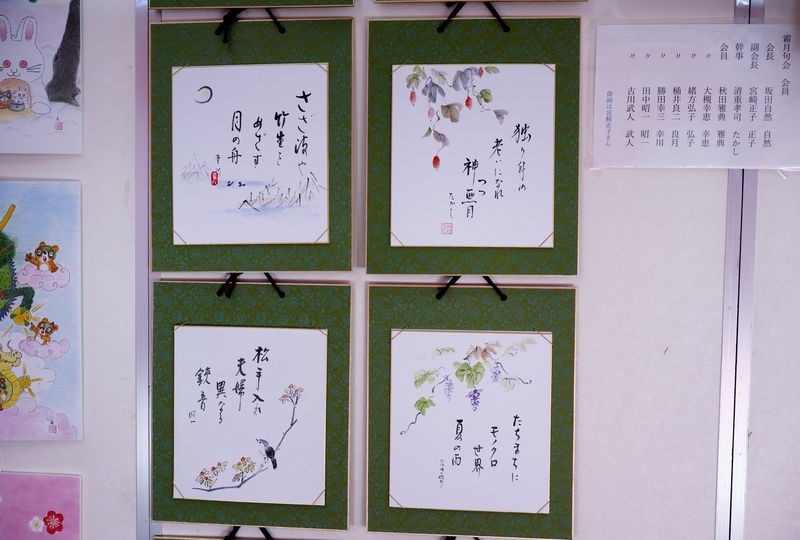 霜月句会　会員
会長　坂田自然　自然
副会長　宮崎正子　正子
幹事　清重孝司　たかし
会員　秋田雅典　雅典
〃　大槻幸恵　幸恵
〃　緒方弘子　弘子
〃　桶井良二　良月
〃　勝田幸三　幸川
〃　田中昭一　昭一
〃　古川武人　武人
俳画は宮崎正子さん
独り身の
老いになれ
つつ
神無月
たかし
さざ波や
竹生を
めざす
月の舟
たちまちに
モノクロ
世界
夏の雨
松手入れ
夫婦
異なる
鋏音
昭一